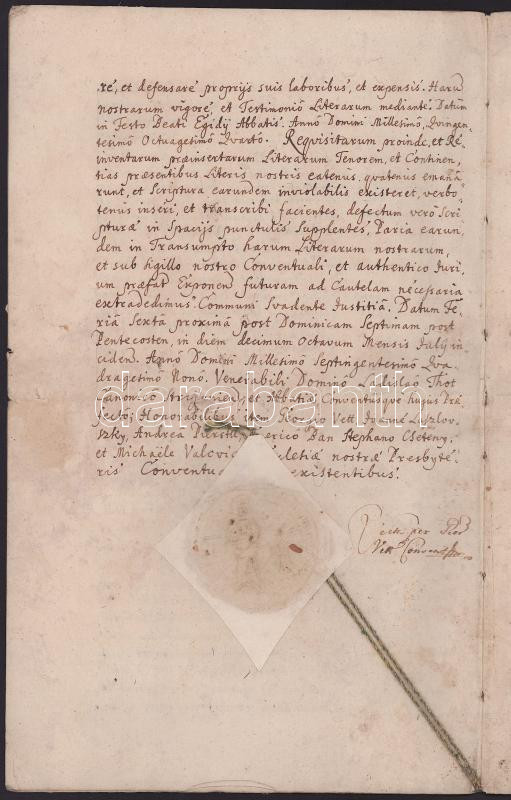 re, et defensare proprijs suis laboribus, et expensis. Haru
nostrarum vigore, et Testimoniô Literarum mediante. Datum
in Festo Beati Egidij Abbatis. Annô Domini Millesimô, Quingen,
tesimô Octuagesimô Quartô. Requisitarum proinde, et Re,
inventarum præinsertarum Literarum Tenorem, et Continen,
tias præsentibus Literis nostris eatenus, quatenus emana,
runt, et Scriptura earundem inviolabilis existeret, verbo,
tenus inseri, et transcribi facientes, defectum verô Scri
pturæ in Spacijs punctulis Supplentes, Paria earun,
dem in Transumpto harum Literarum nostrarum,
et sub sigillo nostro Conventuali, et authentico Juri,
um præfat Exponen futuram ad Cautelam necessaria
extradedimus Communi Svadente Justitiâ. Datum Fe,
riâ Sextâ proximâ post Dominicam Septimam post
Pentecosten, in diem decimum Octavum Mensis Julij in,
ciden. Annô Domini Millesimô Septingentesimô Qua,
dragesimô Nonô. Venerabili Dominô Ladislaô Thot
et Abbatiæ Conventusque hujus Præ
fectô; Honorabilibus item Georgio Vett
szky, Andrea Ban Stephano Cseteny,
et Michaële nostræ Presbyte,
ris Conventu existentibus.
per
Vett Convent
darabanth